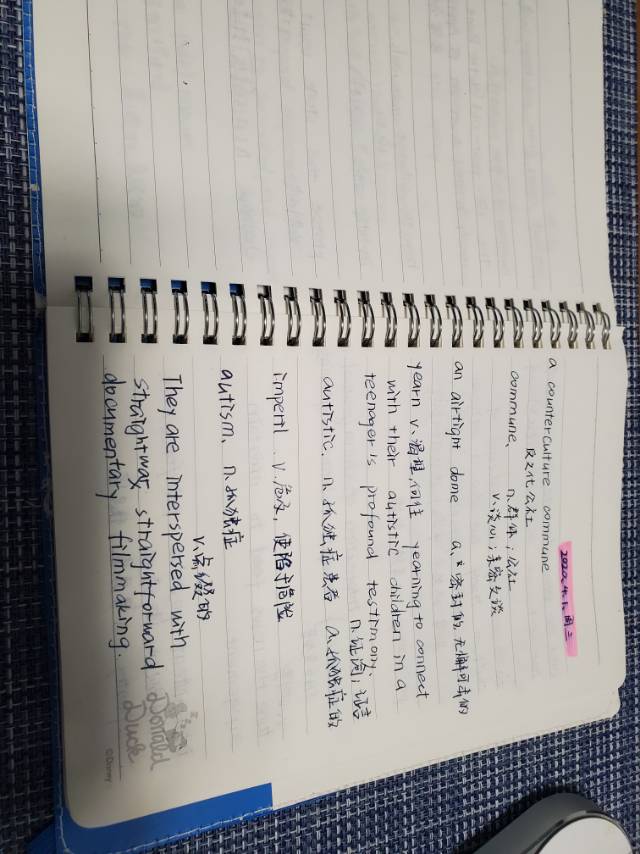 2020.4.1.周三
a counterculture commune
反文化公社
commune. n.群体；公社
v.谈心；亲密交谈
an airtight dome a.密封的,无懈可击的
yearn v.渴望,向往 yearning to connect
with their autistic children in a
teenager's profound testimony.
n.证词；证言
autistic. n.孤独症患者 a.孤独症的
imperil .v.危及，使陷于危险
autism. n.孤独症
v.点缀的
They are interspersed with
straightforward
documentary filmmaking.
Donald
Duck
©Disney